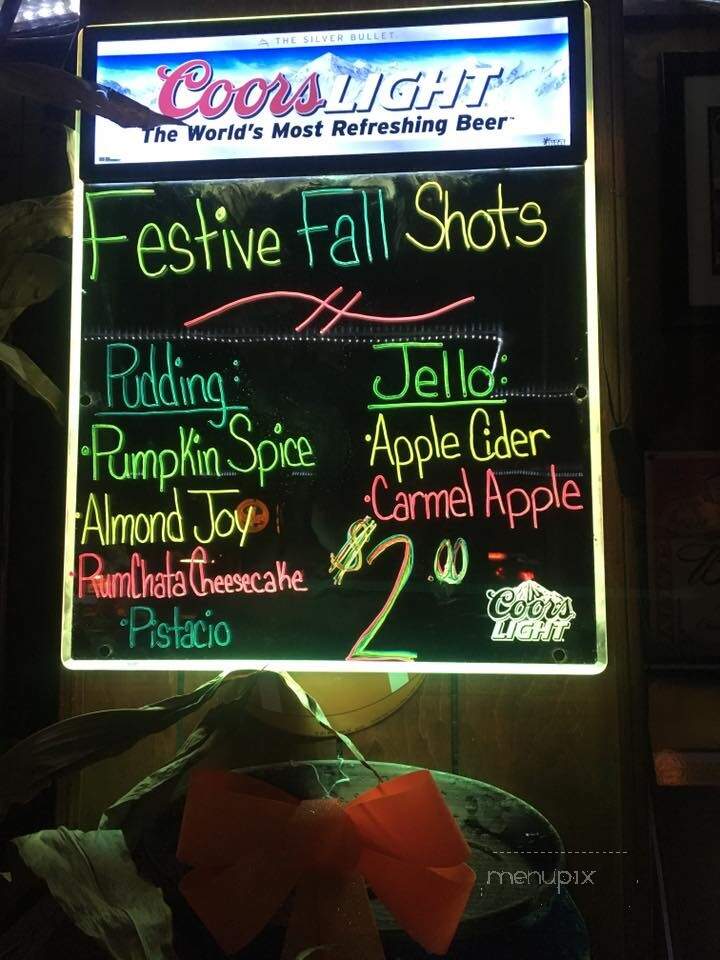 THE SILVER BULLET
Coors LIGHT
The World's Most Refreshing Beer
Festive Fall Shots
Pudding:
•Pumpkin Spice
•Almond Joy
•RumChata Cheesecake
•Pistacio
Jello:
•Apple Cider
•Carmel Apple
$2.00
Coors
LIGHT
menupix